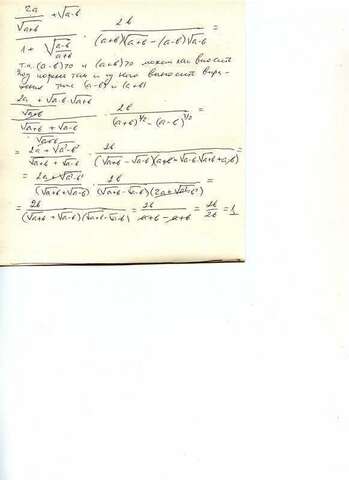 2a/√(a+b) + √(a-b)
/ (1 + √((a-b)/(a+b))) · 2b/((a+b)√(a+b) - (a-b)√(a-b)) =
т.к. (a-b)>0 и (a+b)>0 можем как вносить
под корень так и из него выносить выра-
жения типа (a-b) и (a+b)
(2a + √(a-b)·√(a+b))/√(a+b)
/ ((√(a+b) + √(a-b))/√(a+b)) · 2b/((a+b)^(3/2) - (a-b)^(3/2)) =
= (2a + √(a²-b²))/(√(a+b) + √(a-b)) · 2b/((√(a+b) - √(a-b))(a+b + √(a-b)·√(a+b) + a-b)) =
= (2a + √(a²-b²))/(√(a+b) + √(a-b)) · 2b/((√(a+b) - √(a-b))(2a + √(a²-b²))) =
= 2b/((√(a+b) + √(a-b))(√(a+b) - √(a-b))) = 2b/(a+b-a+b) = 2b/2b = 1